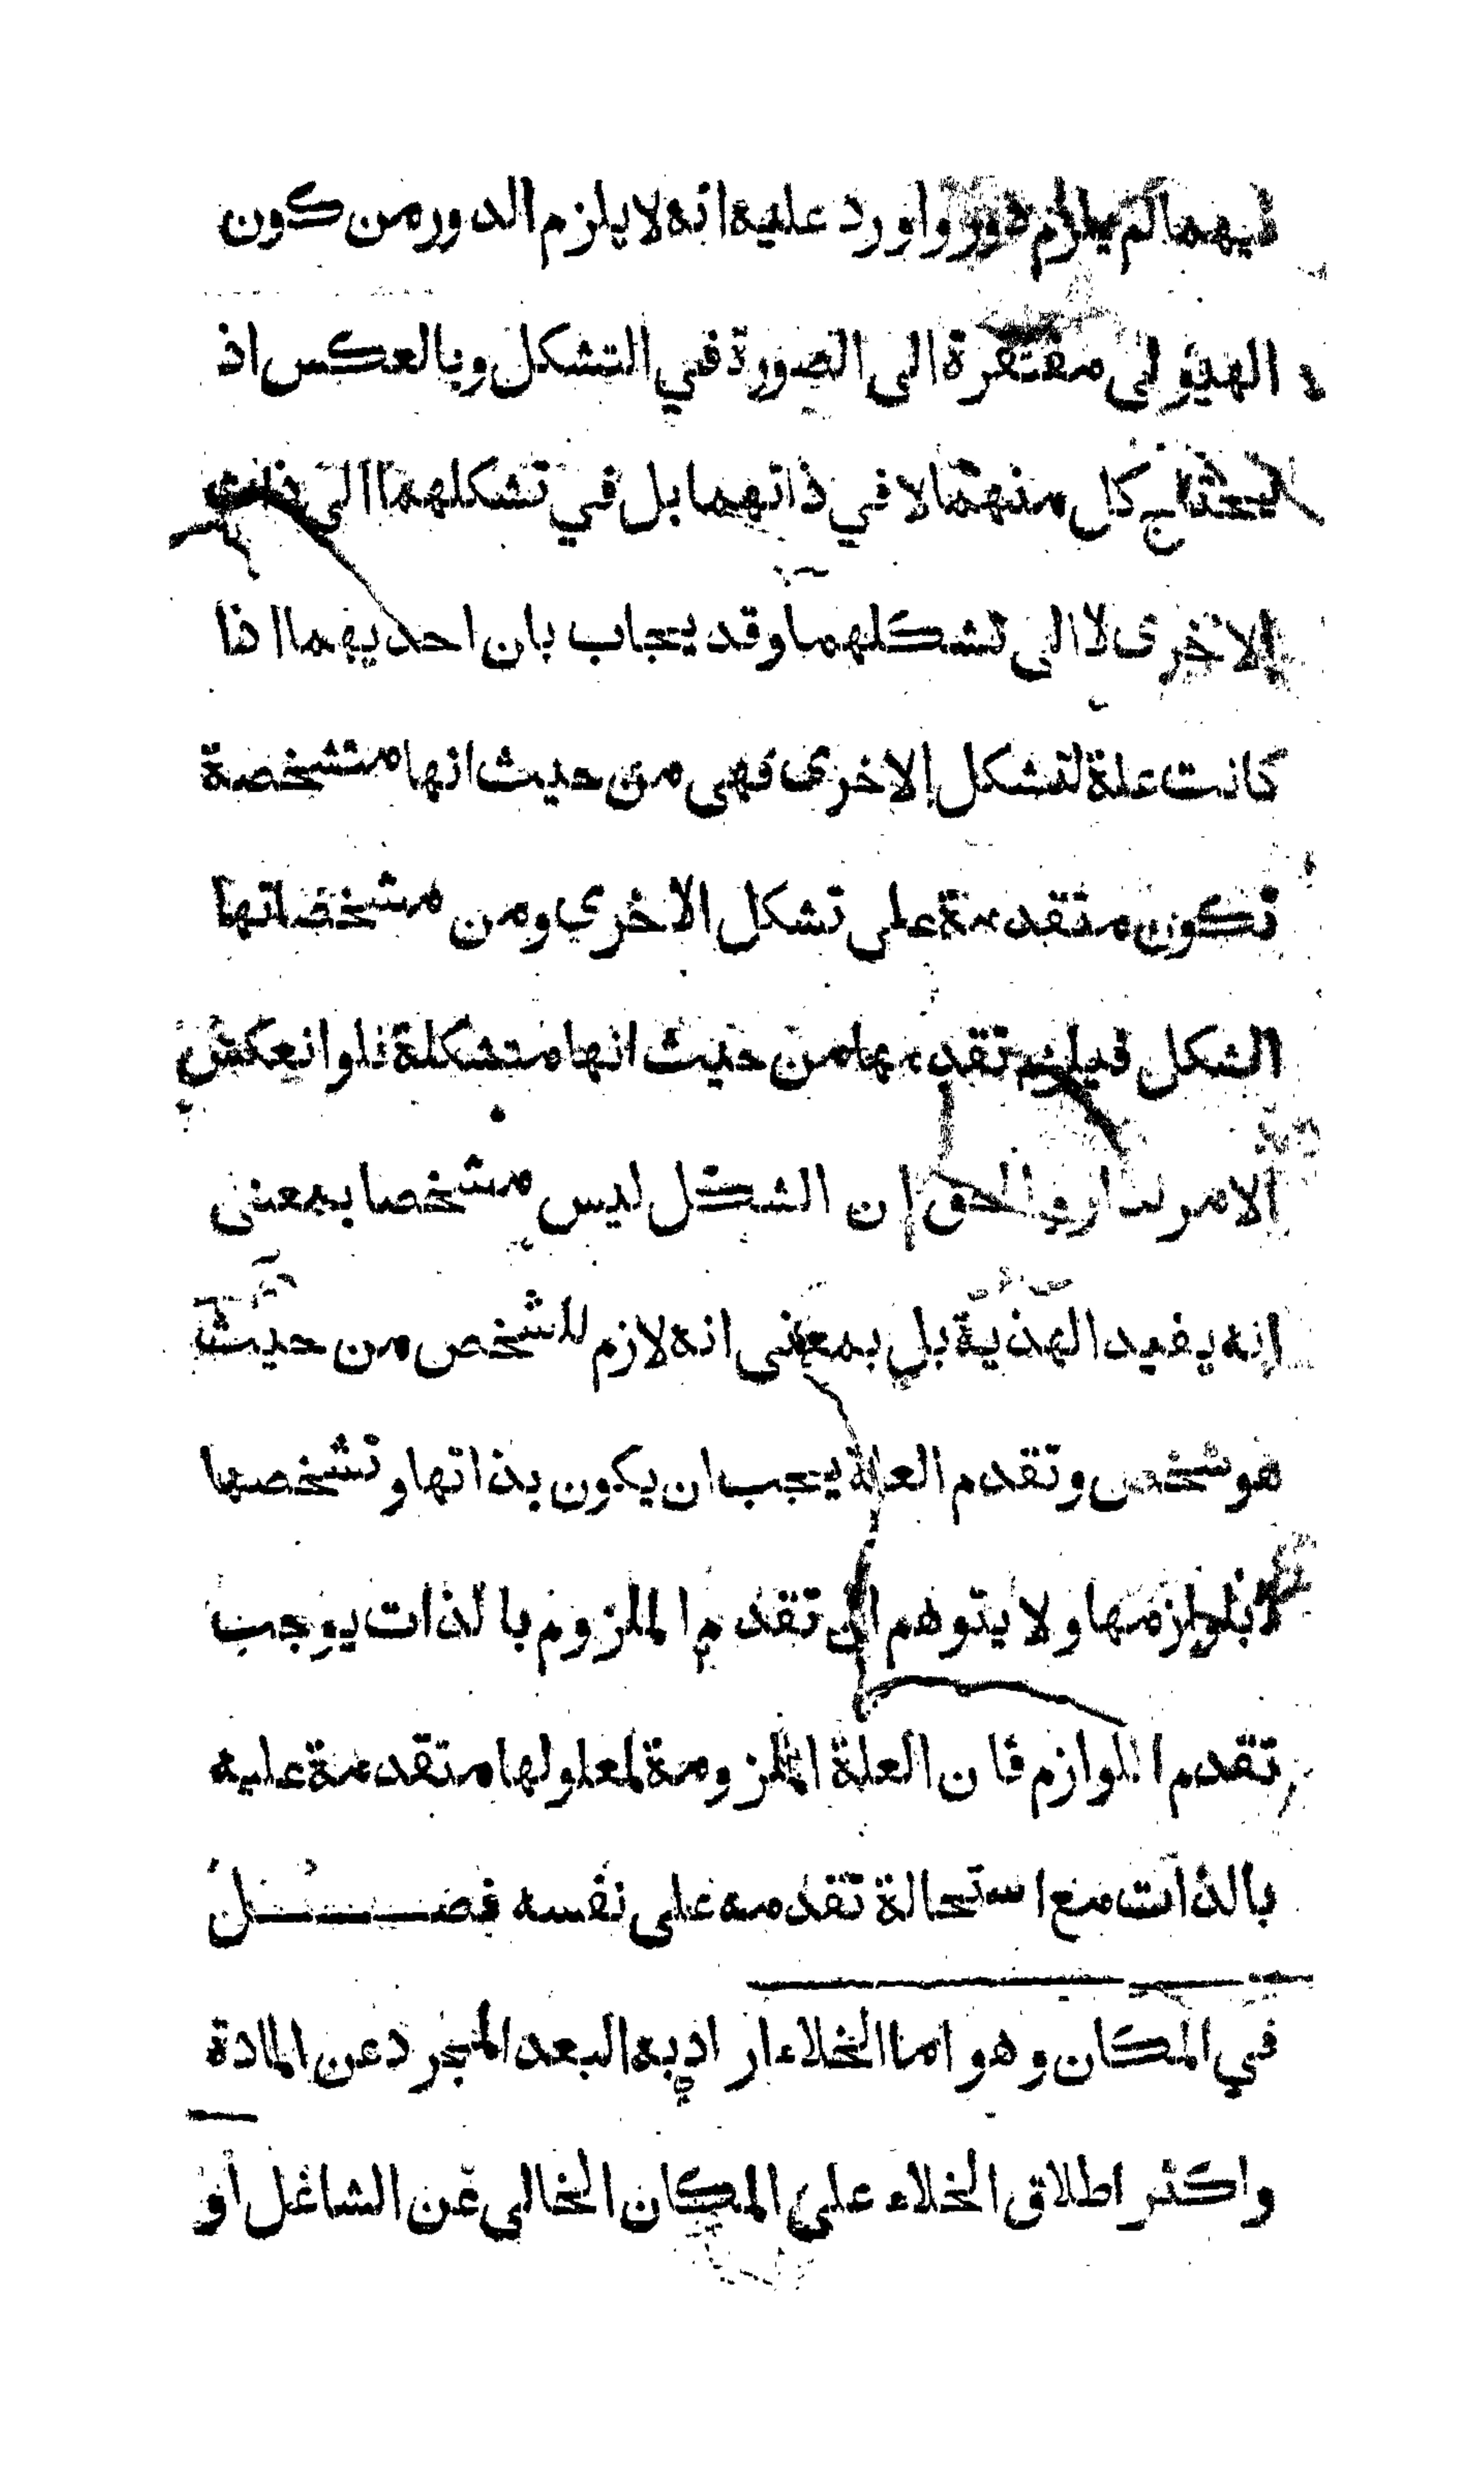 فيهما لم يلزم دور واورد عليه انه لا يلزم الدور من كون
الهيولى مفتقرة الى الصورة في التشكل وبالعكس اذ
يحتاج كل منهما لا في ذاتهما بل في تشكلهما الى ذات
الاخرى لا الى تشكلهما وقد يجاب بان احديهما اذا
كانت علة لتشكل الاخرى فهى من حيث انها متشخصة
تكون متقدمة على تشكل الاخري ومن مشخصاتها
الشكل فيلزم تقدمها من حيث انها متشكلة فلو انعكس
الامر لدار والحق ان الشكل ليس مشخصا بمعنى
انه يفيد الهذية بل بمعنى انه لازم للشخص من حيث
هو شخص وتقدم العلة يجب ان يكون بذاتها وتشخصها
لا بلوازمها ولا يتوهم ان تقدم الملزوم بالذات يوجب
تقدم اللوازم فان العلة الملزومة لمعلولها متقدمة عليه
بالذات مع استحالة تقدمه على نفسه فصل
في المكان وهو اما الخلاء اراد به البعد المجرد عن المادة
واكثر اطلاق الخلاء على المكان الخالي عن الشاغل او